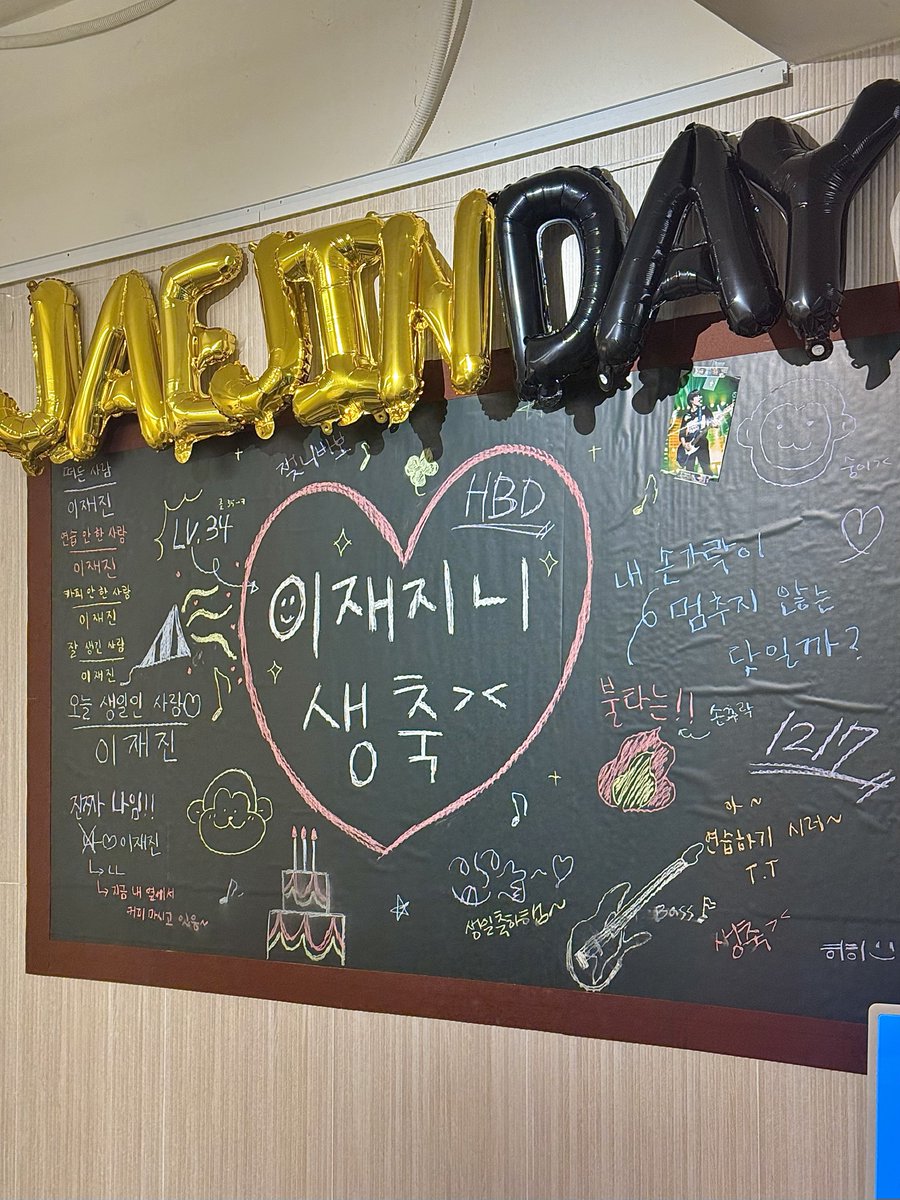 JAEJIN DAY
떠든 사람
이재진
연습 안 한 사람
이재진
카피 안 한 사람
이재진
잘 생긴 사람
이재진
오늘 생일인 사람♡
이재진
진짜 나임!!
이재진
ㄴㄴ
지금 내 옆에서
커피 마시고 있음~
LV.34
HBD
이재지니
생축><
내 손가락이
멈추지 않는
닻일까?
불타는!!
손꾸락
1217
아~
연습하기 시러~
T.T
Bass
생축><
히히
생일축하햄~